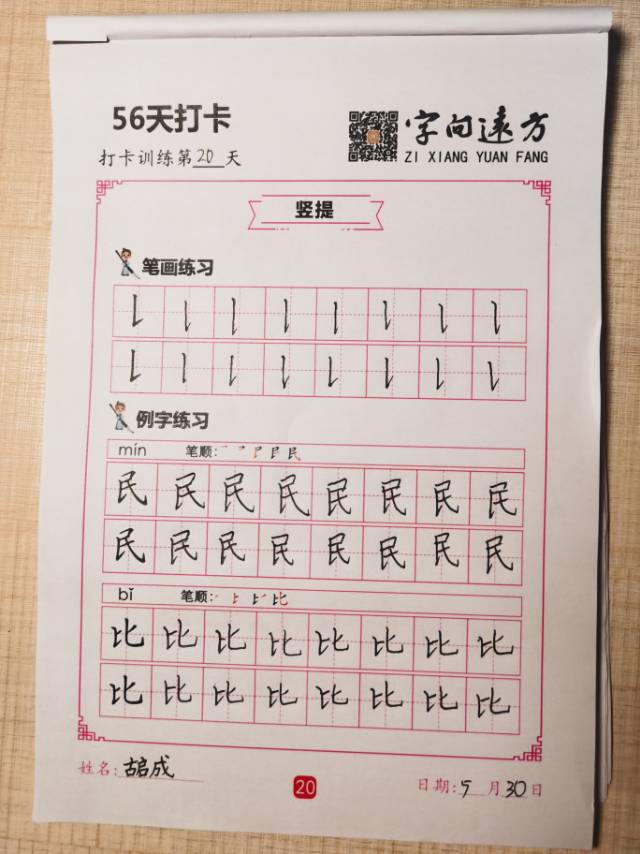 56天打卡
字向远方
打卡训练第20天
ZI XIANG YUAN FANG
竖提
笔画练习
例字练习
mín 笔顺:
民民民民民民民民
民民民民民民民民
bǐ 笔顺:
比比比比比比比比
比比比比比比比比
姓名:胡启成
20
日期:5月30日